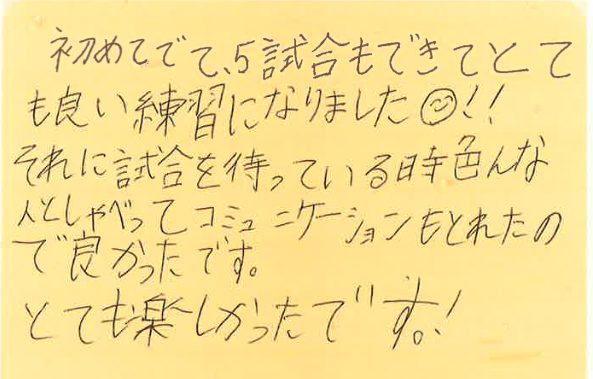 初めてでて、5試合もできてとて
も良い練習になりました☺!!
それに試合を待っている時色んな
人としゃべってコミュニケーションもとれたの
で良かったです。
とても楽しかったです。!